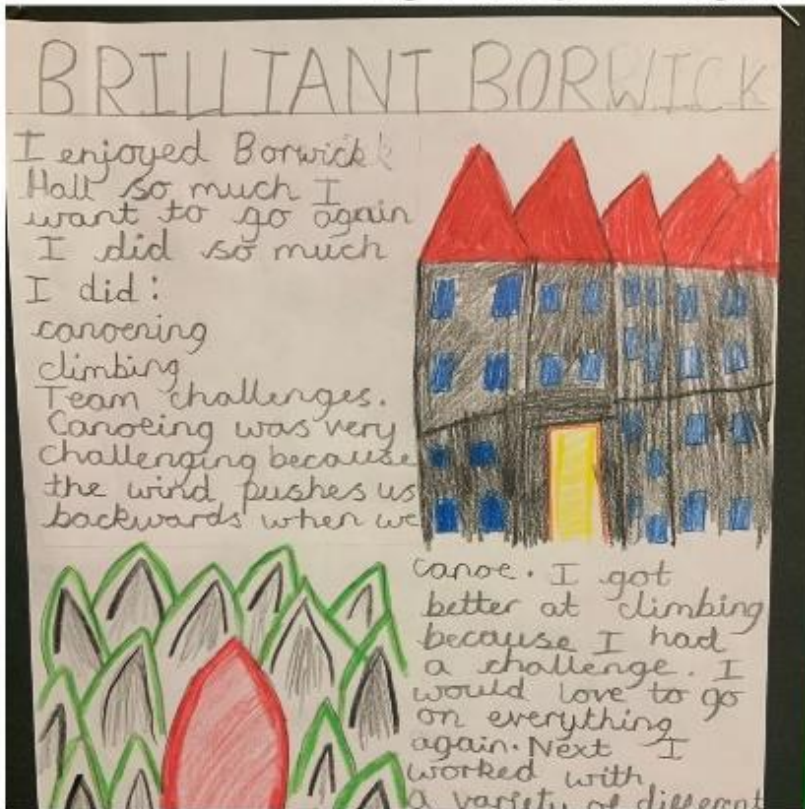 BRILLIANT BORWICK
I enjoyed Borwick
Hall so much I
want to go again
I did so much
I did:
canoening
climbing
Team challenges.
Canoeing was very
challenging because
the wind pushes us
backwards when we
canoe. I got
better at climbing
because I had
a challenge. I
would love to go
on everything
again. Next I
worked with
a variety of different